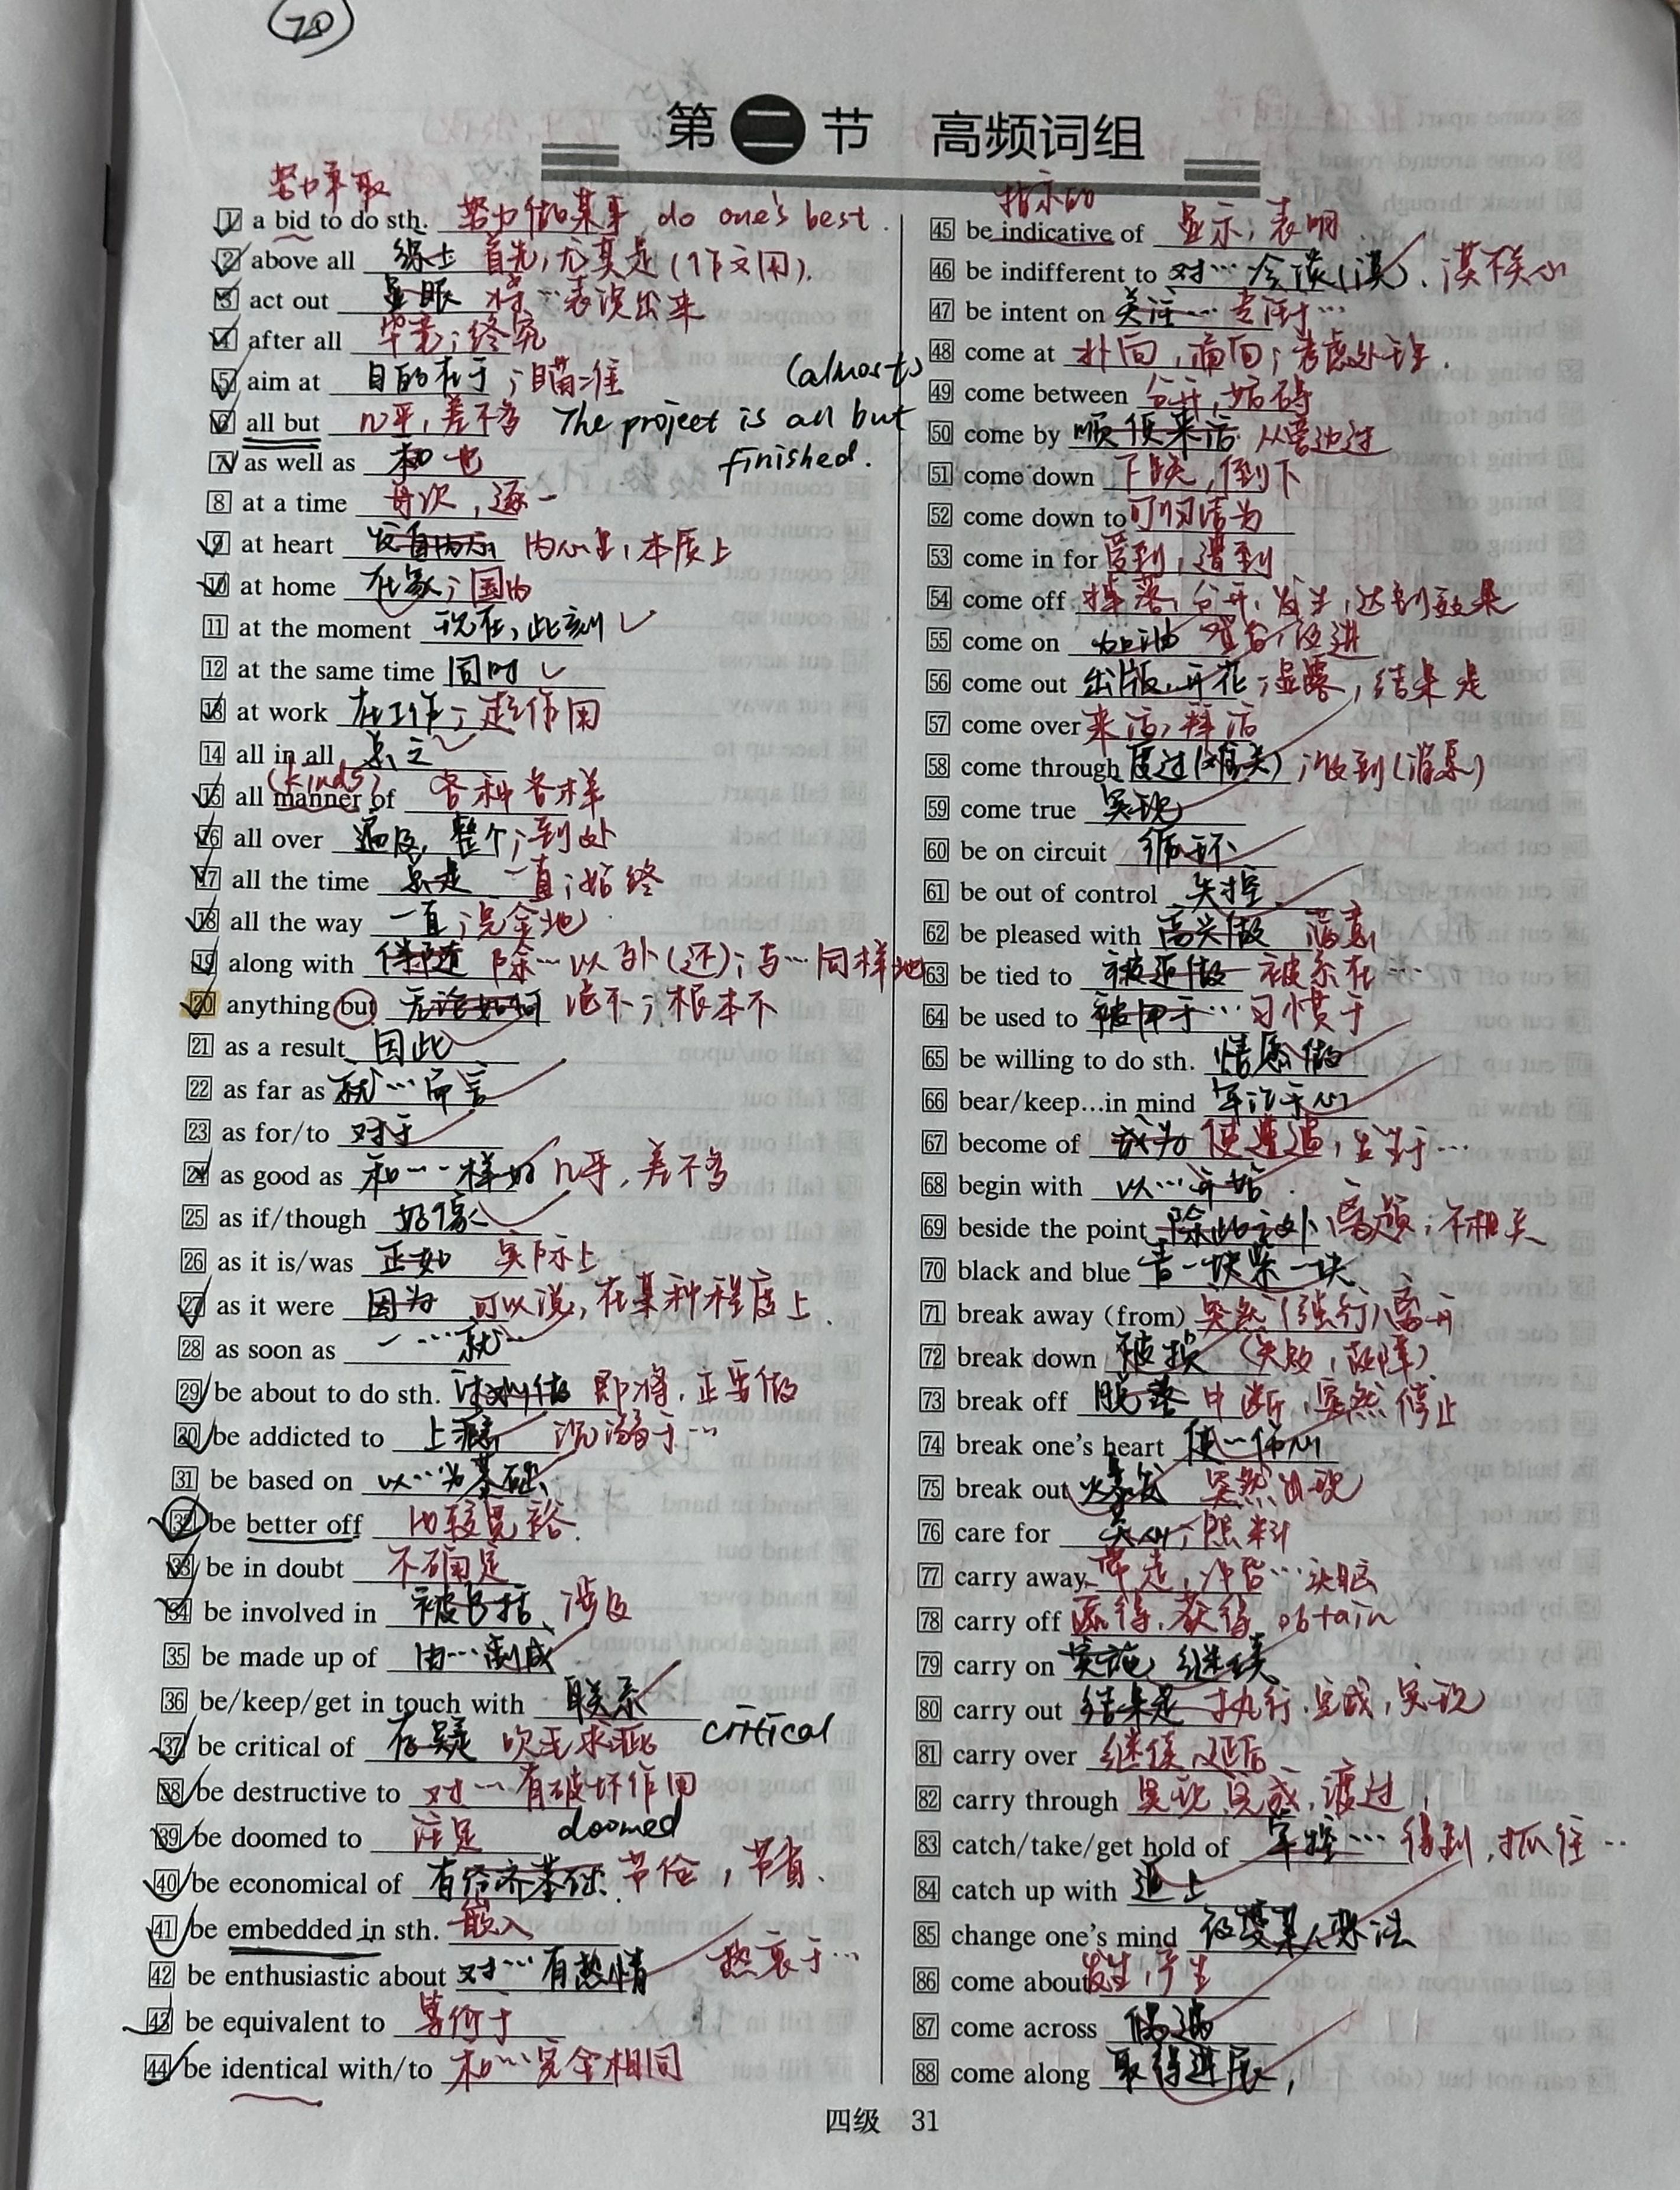 70
第二节 高频词组
努力争取
1 a bid to do sth. 努力做某事 do one's best.
2 above all 综上 首先;尤其是(作文用).
3 act out 显眼 将…表演出来
4 after all 毕竟;终究
5 aim at 目的在于;瞄准
(almost)
6 all but 几乎,差不多 The project is all but
finished.
7 as well as 和 也
8 at a time 每次,逐一
9 at heart 发自内心 内心里,本质上
10 at home 在家;国内
11 at the moment 现在,此刻
12 at the same time 同时
13 at work 在工作;起作用
14 all in all 总之
(kinds)
15 all manner of 各种各样
16 all over 遍及,整个;到处
17 all the time 总是 一直;始终
18 all the way 一直;完全地
19 along with 伴随 除…以外(还);与…同样地
20 anything but 无论如何 绝不;根本不
21 as a result 因此
22 as far as 就…而言
23 as for/to 对于
24 as good as 和…一样好 几乎,差不多
25 as if/though 好像
26 as it is/was 正如 实际上
27 as it were 因为 可以说,在某种程度上.
28 as soon as 一…就
29 be about to do sth. 计划做 即将,正要做
30 be addicted to 上瘾 沉溺于…
31 be based on 以…为基础
32 be better off 比较宽裕.
33 be in doubt 不确定
34 be involved in 被包括、涉及
35 be made up of 由…制成
36 be/keep/get in touch with 联系
37 be critical of 存疑 吹毛求疵 critical
38 be destructive to 对…有破坏作用
39 be doomed to 注定 doomed
40 be economical of 有经济基础. 节俭,节省.
41 be embedded in sth. 嵌入
42 be enthusiastic about 对…有热情 热衷于…
43 be equivalent to 等价于
44 be identical with/to 和…完全相同
指示的
45 be indicative of 显示;表明
46 be indifferent to 对…冷淡(漠)、漠不关心
47 be intent on 关注… 专注于…
48 come at 扑向,涌向;考虑处理.
49 come between 分开,妨碍
50 come by 顺便来访 从旁边过
51 come down 下跌,倒下
52 come down to 可归结为
53 come in for 受到,遭到
54 come off 掉落,分开,发生,达到效果
55 come on 加油 登台,促进
56 come out 出版,开花;显露,结果是
57 come over 来访,拜访
58 come through 度过(难关);收到(消息)
59 come true 实现
60 be on circuit 循环
61 be out of control 失控
62 be pleased with 高兴做 满意
63 be tied to 被迫做 被系在…
64 be used to 被用于… 习惯于
65 be willing to do sth. 情愿做
66 bear/keep...in mind 牢记于心
67 become of 成为 使遭遇,发生于…
68 begin with 以…开始.
69 beside the point 除此之外 离题;不相关
70 black and blue 青一块紫一块
71 break away (from) 突然(强行)离开
72 break down 被损 (失败,故障)
73 break off 脱落 中断,突然停止
74 break one's heart 使…伤心
75 break out 爆发 突然出现
76 care for 关心;照料
77 carry away 带走,冲昏…头脑
78 carry off 赢得,获得 obtain
79 carry on 实施、继续
80 carry out 结果是 执行.完成,实现
81 carry over 继续、延后
82 carry through 实现、完成,渡过
83 catch/take/get hold of 牢控… 得到,抓住…
84 catch up with 追上
85 change one's mind 改变某人想法
86 come about 发生,产生
87 come across 偶遇
88 come along 取得进展,
四级 31